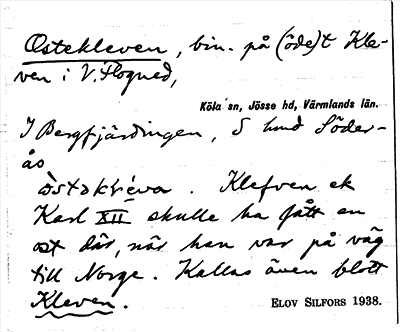 Ostekleven, bin. på (öde)t Kle-
ven i V. Flogned,
Köla sn, Jösse hd, Värmlands län.
I Bergfjärdingen, S hmd Söder-
ås
. Klefven ek
Karl XII skulle ha fått en
ost där, när han var på väg
till Norge. Kallas även blott
Kleven.
ELOV SILFORS 1938.